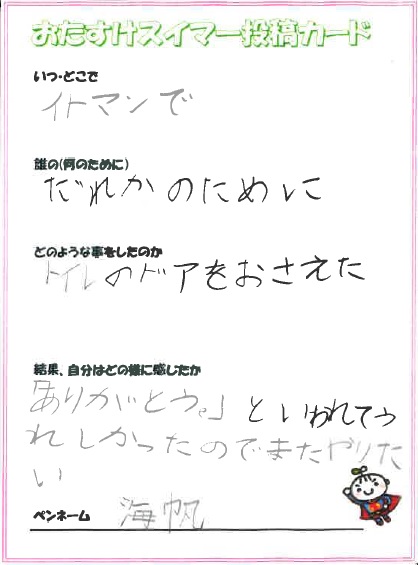 おたすけスイマー投稿カード
いつ・どこで
イトマンで
誰の(何のために)
だれかのために
どのような事をしたのか
トイレのドアをおさえた
結果、自分はどの様に感じたか
「ありがとう。」といわれてう
れしかったのでまたやりた
い
ペンネーム 海帆